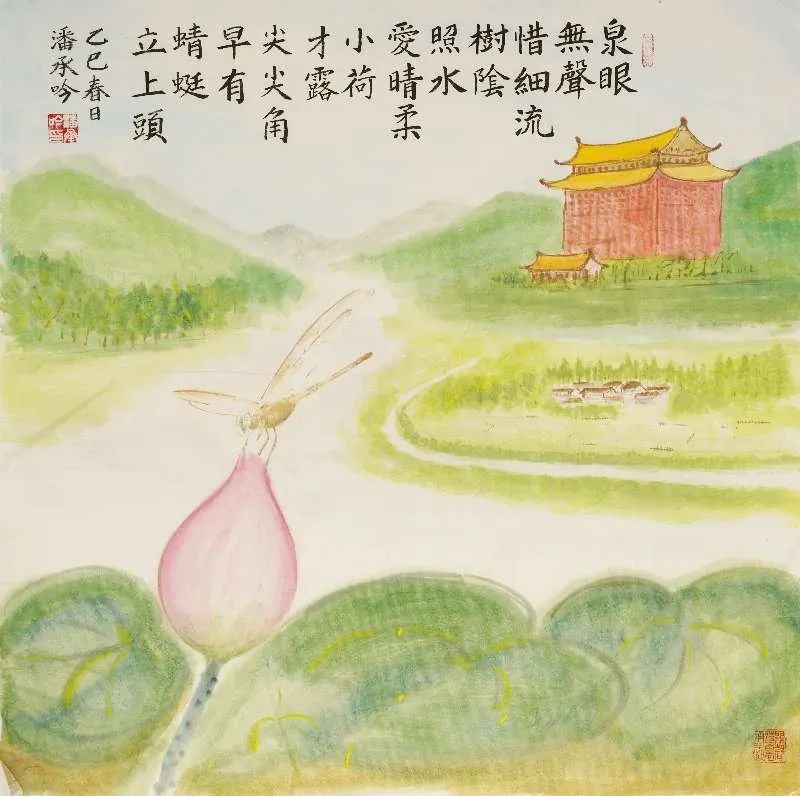 泉眼
無聲
惜細流
樹陰
照水
愛晴柔
小荷
才露
尖尖角
早有
蜻蜓
立上頭
乙巳春日
潘承吟